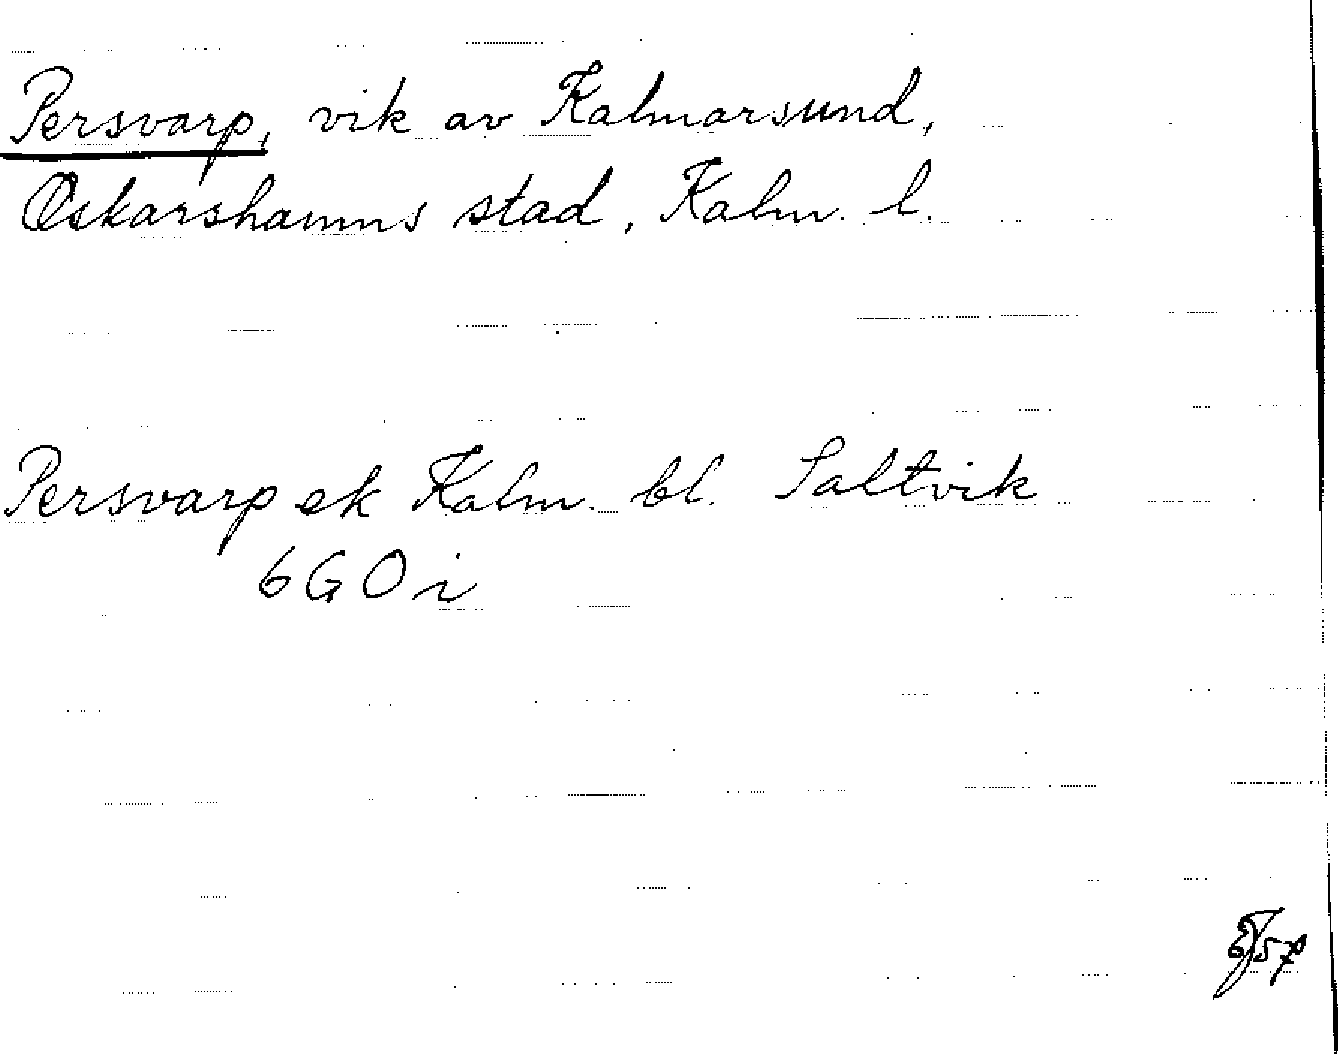 Persvarp, vik av Kalmarsund,
Oskarshamns stad, Kalm. l.
Persvarp ek Kalm. bl. Saltvik
6 G O i